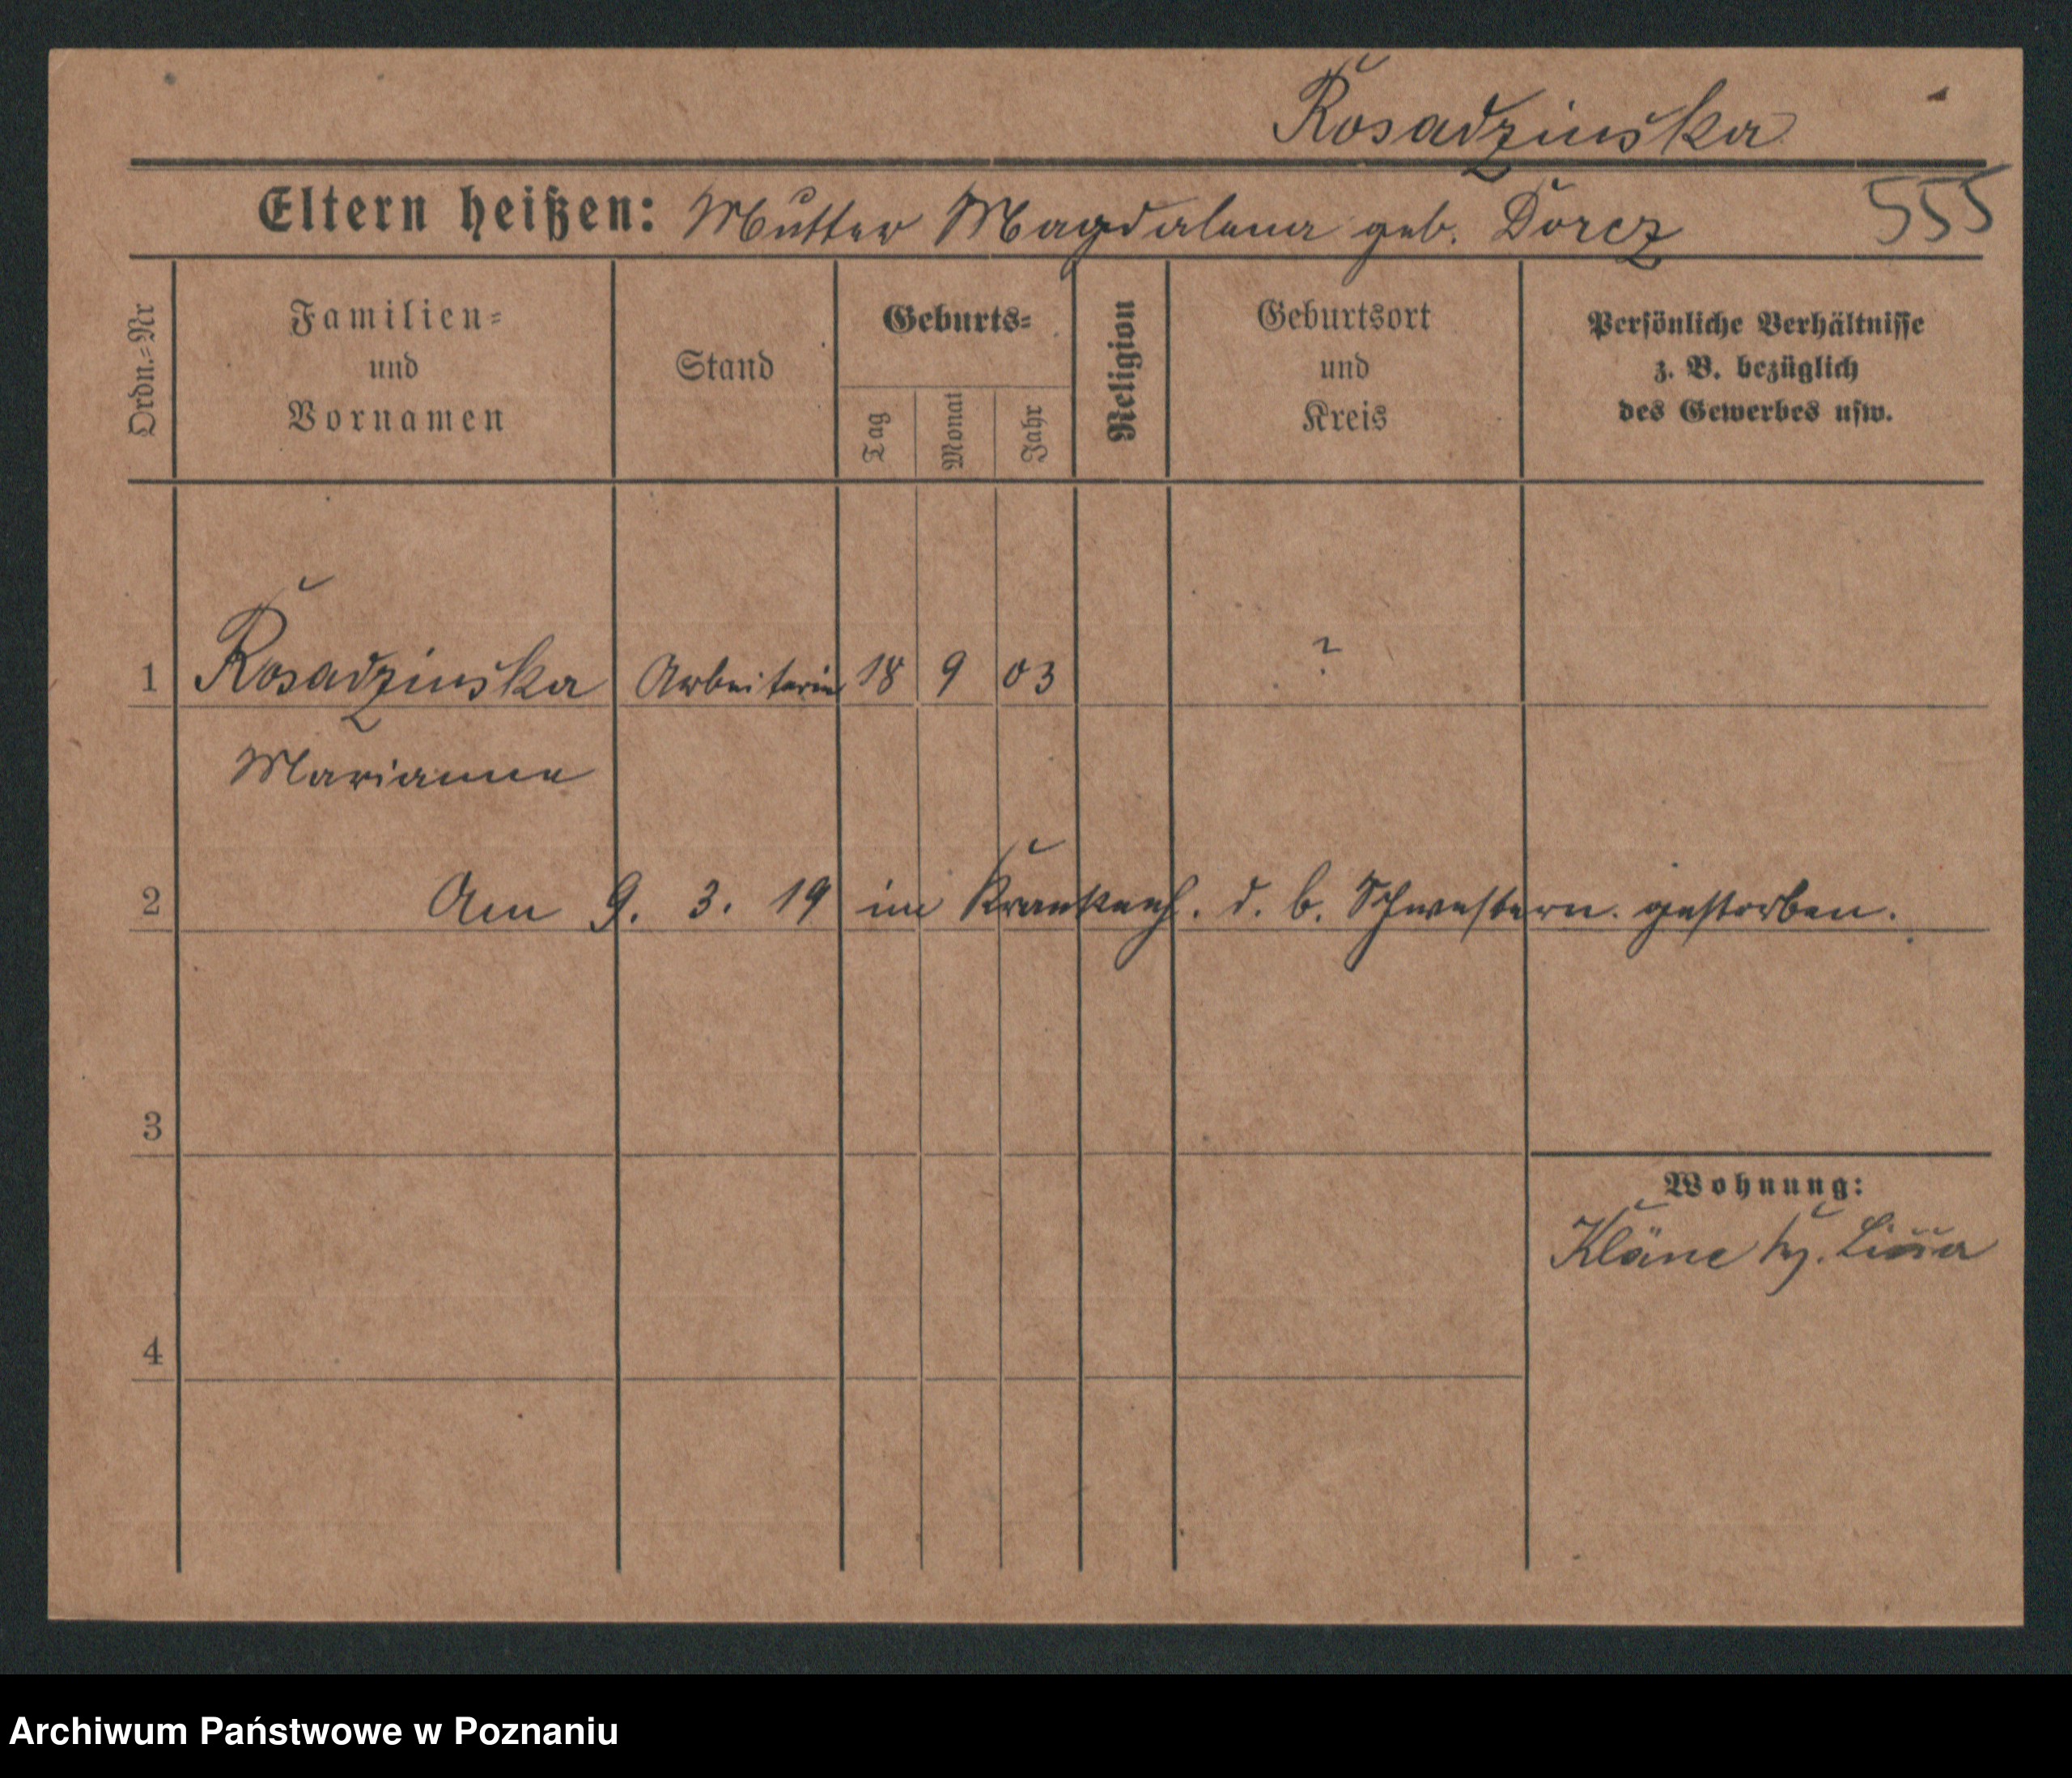 Rosadzinska
Eltern heißen: Mutter Magdalena geb. Dorcz 555
Ordn.=Nr
Familien=
und
Vornamen
Stand
Geburts=
Tag
Monat
Jahr
Religion
Geburtsort
und
Kreis
Persönliche Verhältnisse
z. B. bezüglich
des Gewerbes usw.
1 Rosadzinska Arbeiterin 18 9 03 ?
Marianna
2 Am 9. 3. 19 im Krankenh. d. b. Schwestern gestorben.
3
Wohnung:
Kläne Lissa
4
Archiwum Państwowe w Poznaniu